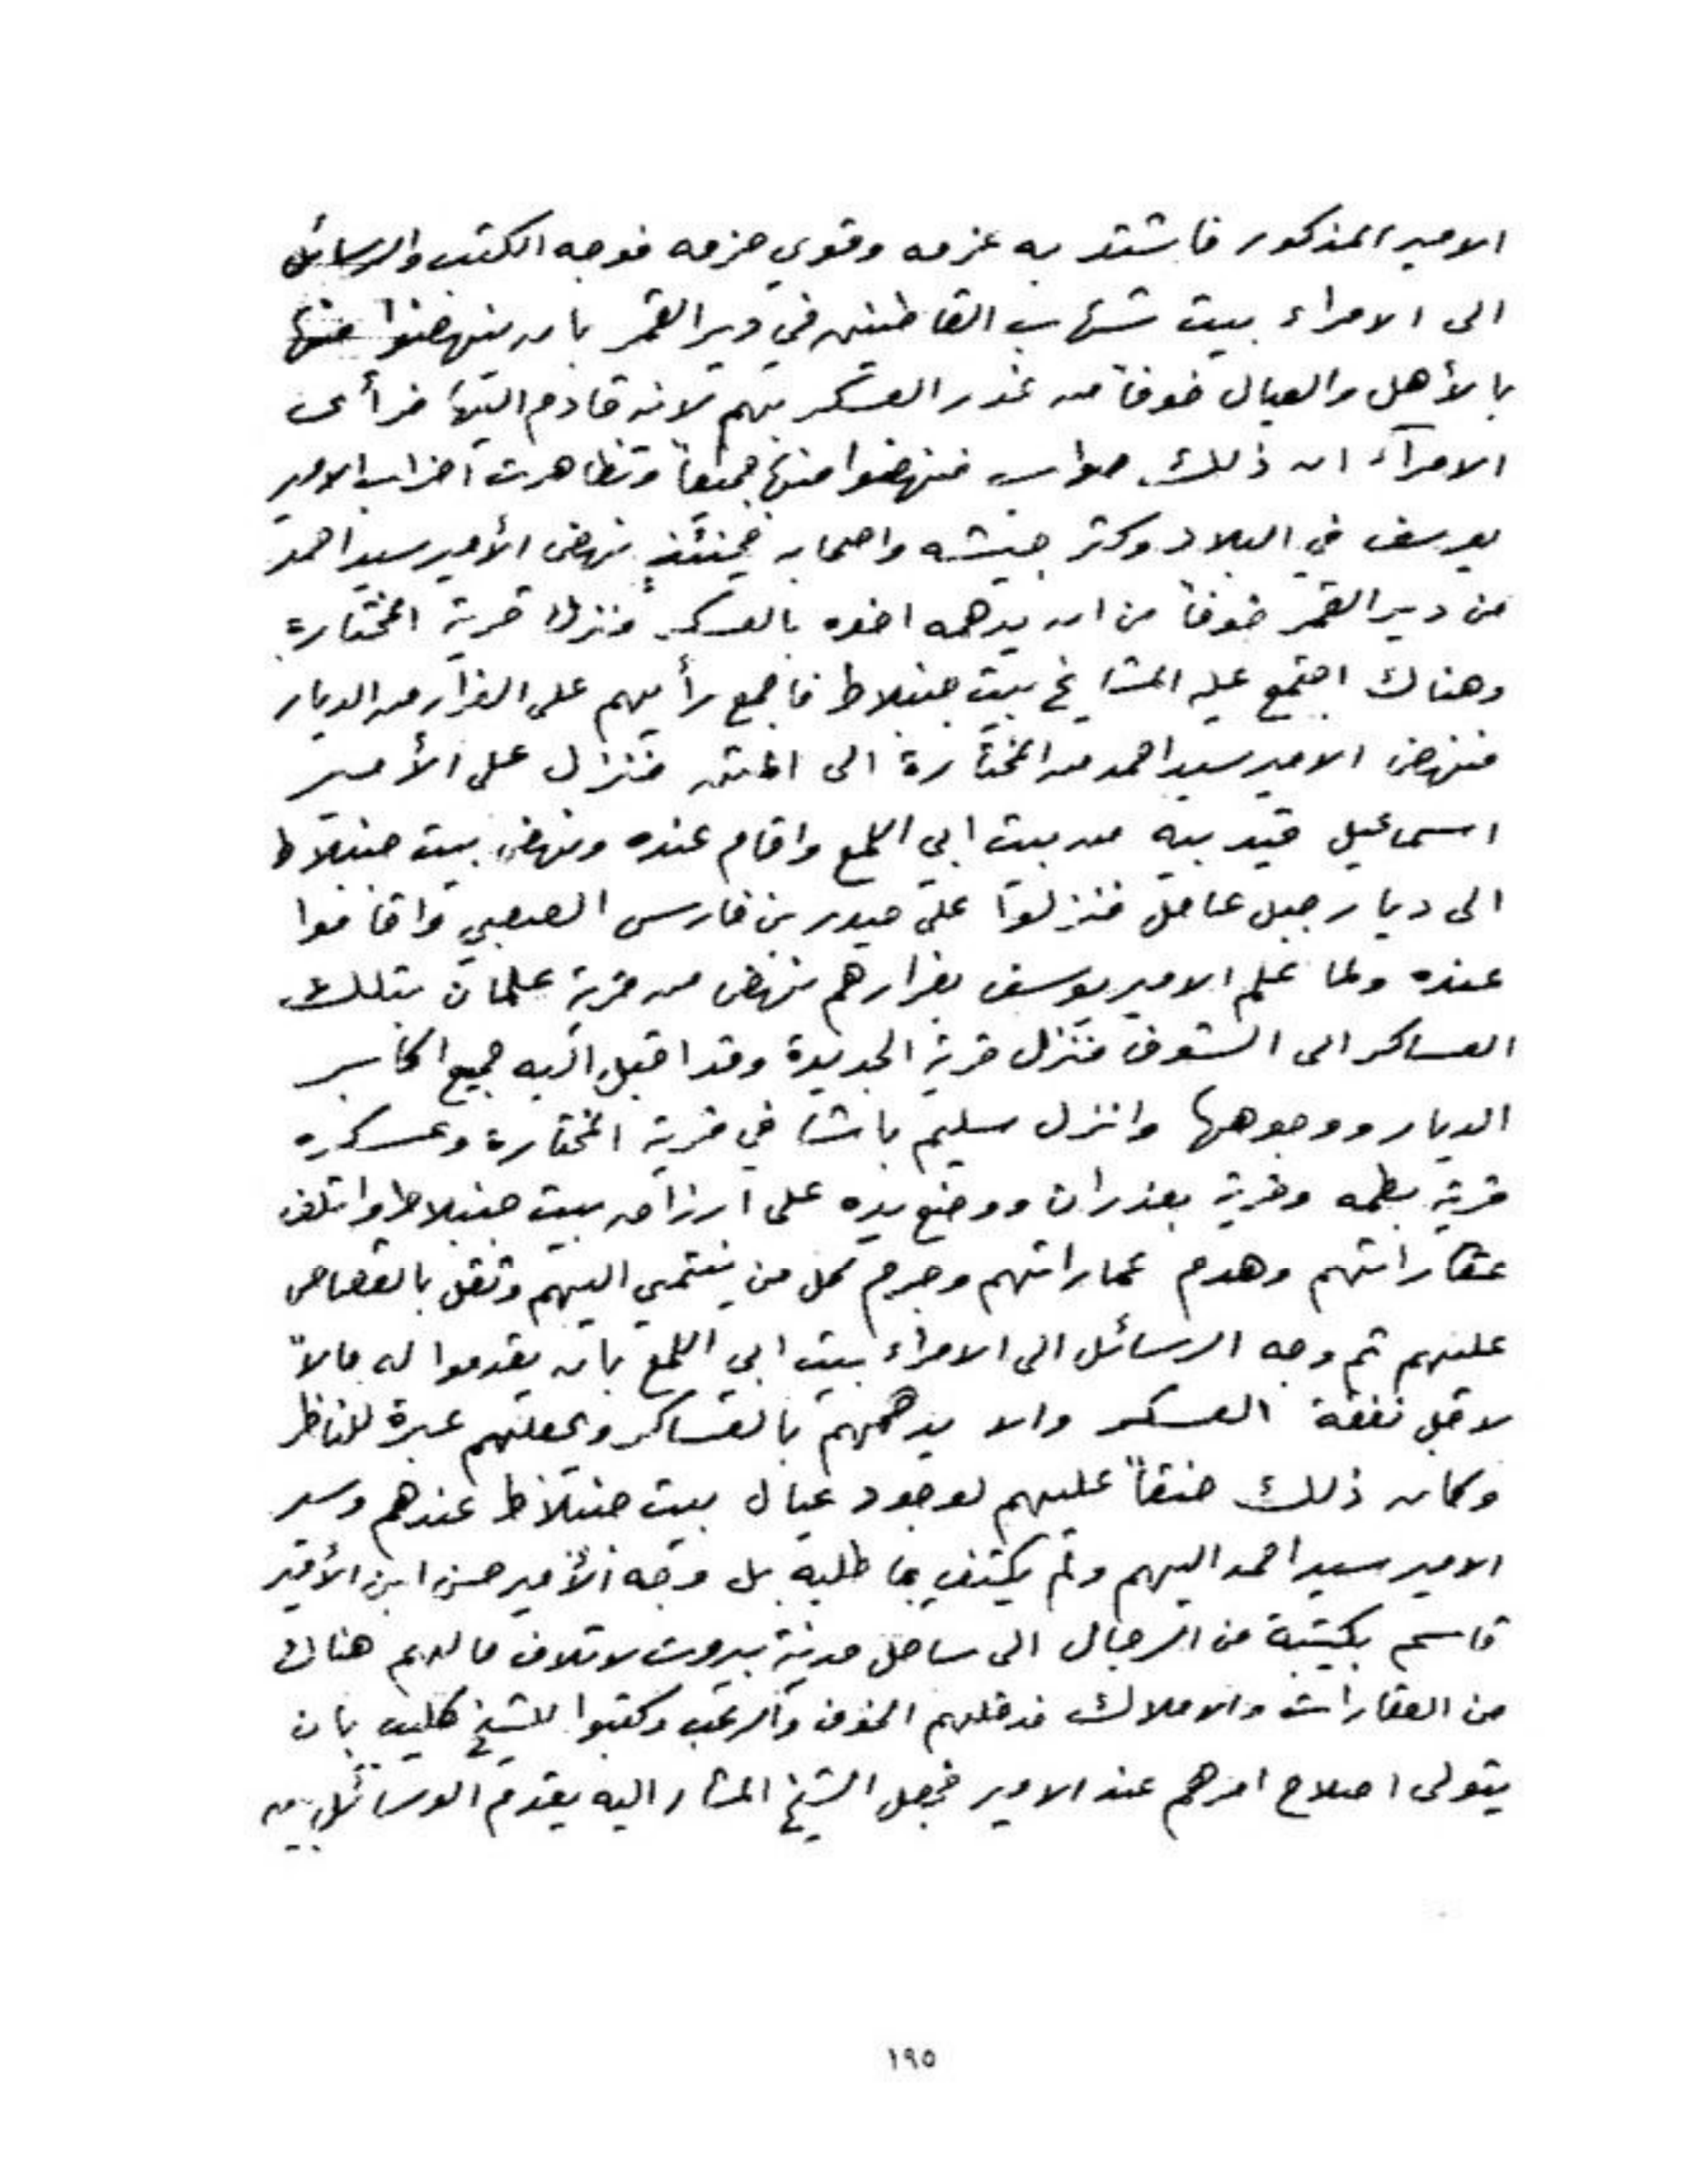 الامير المذكور فاشتد به عزمه وقوي حزمه فوجه الكتب والرسائل
الى الامراء بيت شهاب القاطنين في دير القمر بان ينهضوا منها
بالأهل والعيال خوفاً من غدر العسكر بهم لانه قادم اليها فرأى
الامرآء ان ذلك صواب فنهضوا منها جميعاً وتظاهرت احزاب الامير
يوسف في البلاد وكثر جيشه واصحابه فحينئذٍ نهض الأمير سيد احمد
من دير القمر خوفاً من ان يدهمه اخوه بالعسكر ونزل قرية المختارة
وهناك اجتمع عليه المشايخ بيت جنبلاط فاجمع رأيهم على الفرار من الديار
فنهض الامير سيد احمد من المختارة الى المتن فنزل على الأمير
اسماعيل قيد بيه من بيت ابي اللمع واقام عنده ونهض بيت جنبلاط
الى ديار جبل عامل فنزلوا على حيدر بن فارس الصعبي واقاموا
عنده ولما علم الامير يوسف بفرارهم نهض من قرية علمان بتلك
العساكر الى الشوف فنزل قرية الجديدة وقد اقبل اليه جميع اكابر
الديار ووجوهها وانزل سليم باشا في قرية المختارة وعسكره
قرية بطمه وقرية بعذران ووضع يده على ارزاق بيت جنبلاط واتلف
عقاراتهم وهدم عماراتهم وجرم كل من ينتمي اليهم وثقل بالقصاص
عليهم ثم وجه الرسائل الى الامراء بيت ابي اللمع بان يقدموا له مالاً
لاجل نفقة العسكر والا يدهمهم بالعساكر ويجعلهم عبرة للناظر
وكان ذلك حنقاً عليهم لوجود عيال بيت جنبلاط عندهم وسير
الامير سيد احمد اليهم ولم يكتفِ بما طلبه بل وجه الأمير حسن ابن الأمير
قاسم بكتيبة من الرجال الى ساحل مدينة بيروت لاتلاف ما لهم هناك
من العقارات والاملاك فدخلهم الخوف والرعب وكتبوا للشيخ كليب بان
يتولى اصلاح امرهم عند الامير فجعل الشيخ المشار اليه يقدم الوسائل بين
١٩٥